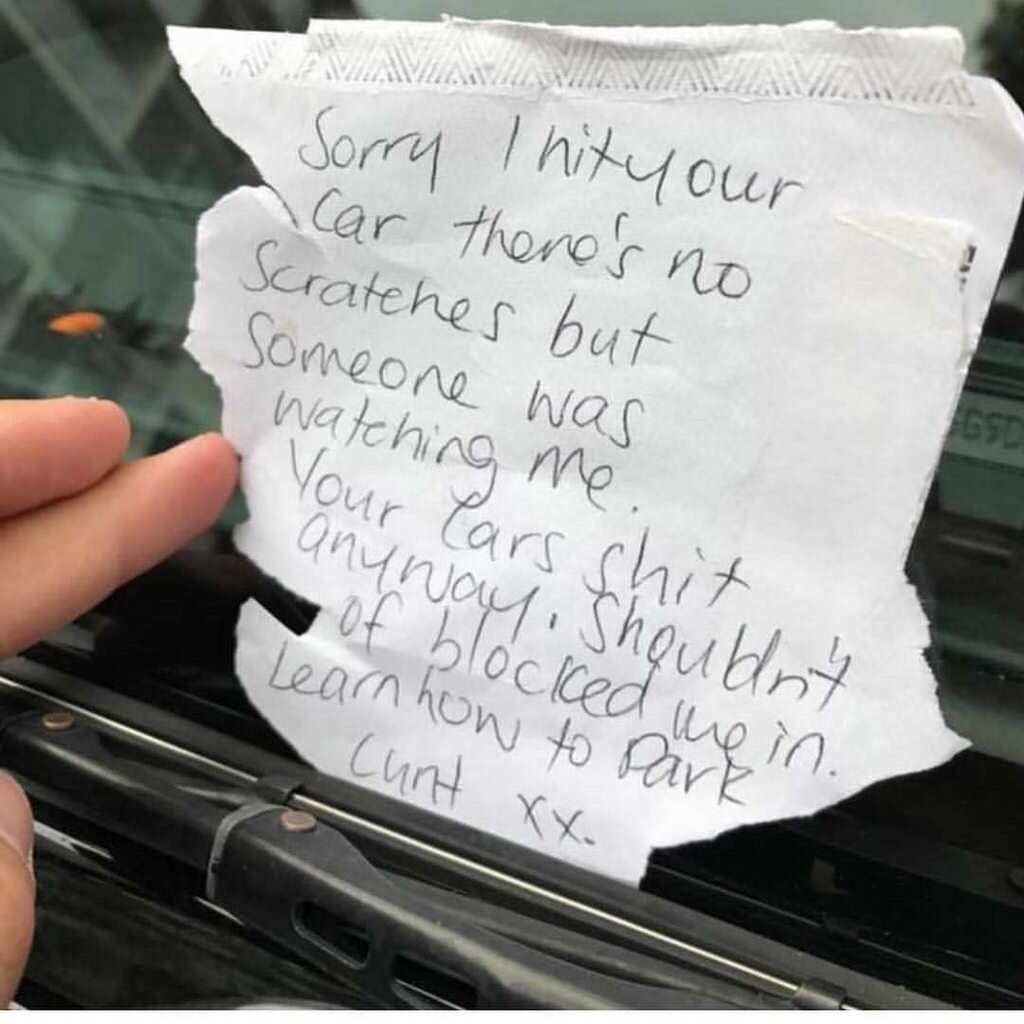 Sorry I hit your
car there's no
Scratches but
Someone was
watching me.
Your cars shit
anyway. Shouldn't
of blocked me in.
Learn how to Park
Cunt xx.